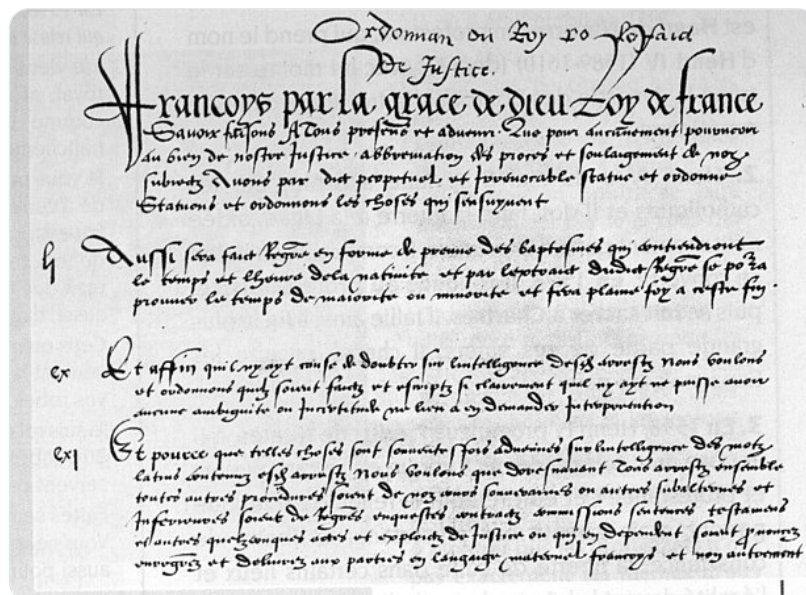 Ordonnan du Roy
De Justice.
Francoys par la grace de dieu Roy de france
Scavoir faisons A Tous presens et advenir. Que pour aucunement pourveoir
au bien de nostre Justice abbreviation des proces et soulaigement de noz
subiectz Avons par edict perpetuel et Irrevocable statue et ordonne
Statuons et ordonnons les choses qui sensuyvent
li Aussi sera faict Regre en forme de preuve des baptesmes qui contiendront
le temps et lheure dela nativite et par lextraict dudict Regre se porra
prouver le temps de maiorite ou minorite et fera plaine foy a ceste fin.
cx Et affin quil ny ayt cause de doubter sur lintelligence desdz arrestz Nous voulons
et ordonnons quilz soient faictz et escriptz si clairement quil ny ayt ne puisse avoir
aucune ambiguite ou Incertitude ne lieu a en demander Interpretation
cxi Et pource que telles choses sont souventesfois advenues sur lintelligence des motz
latins contenuz esdz arrestz Nous voulons que doresnavant Tous arrestz ensemble
toutes autres procedures soient de noz cours souveraines ou autres subalternes et
Inferieures soient de Regres enquestes contractz commissions sentences testamens
et autres quelzconques actes et exploictz de Justice ou qui en dependent soient prononcez
enregrez et delivrez aux parties en langage maternel francoys et non autrement